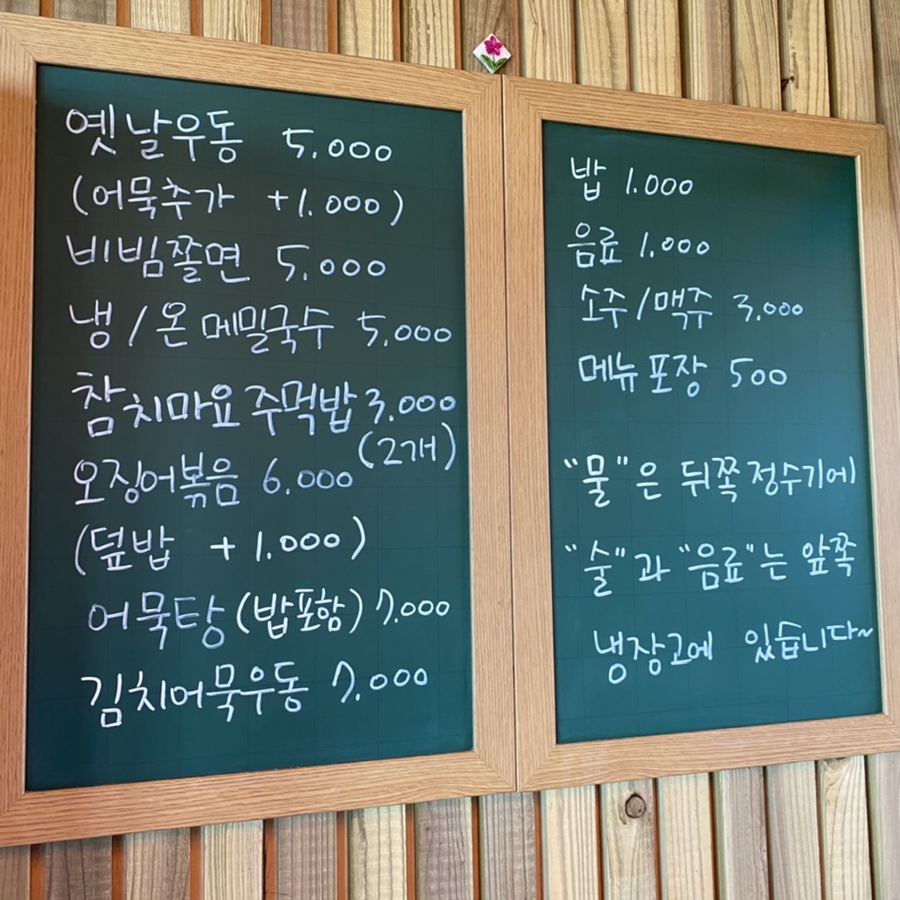 옛날우동 5.000
(어묵추가 +1.000)
비빔쫄면 5.000
냉/온 메밀국수 5.000
참치마요 주먹밥 3.000
(2개)
오징어볶음 6.000
(덮밥 +1.000)
어묵탕(밥포함) 7.000
김치어묵우동 7.000
밥 1.000
음료 1.000
소주/맥주 3.000
메뉴 포장 500
"물"은 뒤쪽 정수기에
"술"과 "음료"는 앞쪽
냉장고에 있습니다~